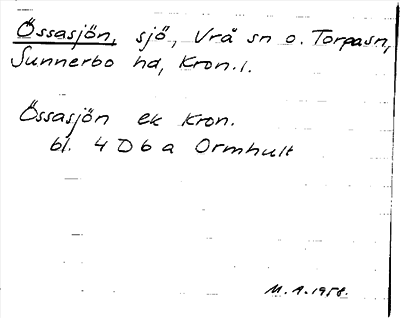 Össasjön, sjö, Vrå sn o. Torpasn,
Sunnerbo hd, Kron.l.
Össasjön ek Kron.
bl. 4 D 6 a Ormhult
M.A.1958.